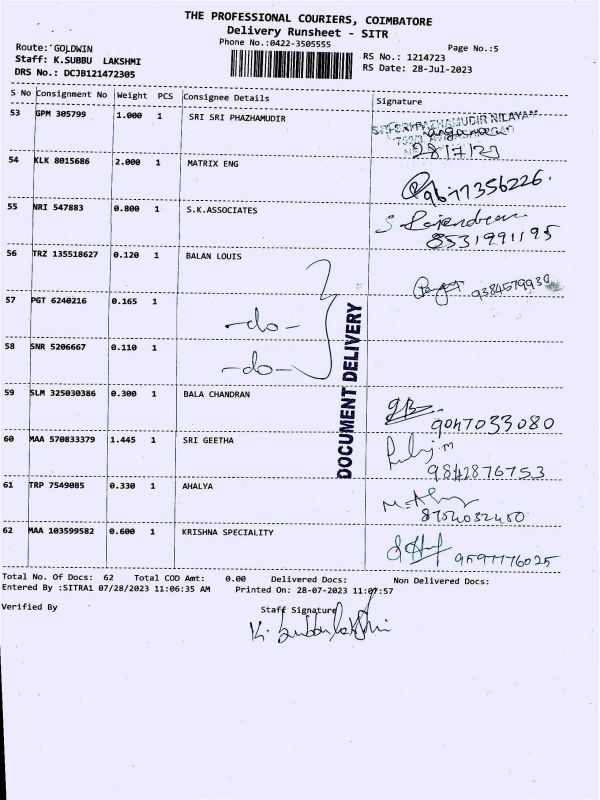 THE PROFESSIONAL COURIERS, COIMBATORE
Delivery Runsheet - SITR
Phone No.:0422-3505555
Page No.:5
Route: GOLDWIN
Staff: K.SUBBU LAKSHMI
DRS No.: DCJB121472305
RS No.: 1214723
RS Date: 28-Jul-2023
S No Consignment No Weight PCS Consignee Details Signature
53 GPM 305799 1.000 1 SRI SRI PHAZHAMUDIR
28/7/23
54 KLK 8015686 2.000 1 MATRIX ENG 9677356226.
55 NRI 547883 0.800 1 S.K.ASSOCIATES S Rajendran
8531991195
56 TRZ 135518627 0.120 1 BALAN LOUIS 9384579930
57 PGT 6240216 0.165 1 -do-
58 SNR 5206667 0.110 1 -do-
DOCUMENT DELIVERY
59 SLM 325030386 0.300 1 BALA CHANDRAN
9047033080
60 MAA 570833379 1.445 1 SRI GEETHA
9842876753
61 TRP 7549085 0.330 1 AHALYA
8754032450
62 MAA 103599582 0.600 1 KRISHNA SPECIALITY 9597776025
Total No. Of Docs: 62 Total COD Amt: 0.00 Delivered Docs: Non Delivered Docs:
Entered By :SITRA1 07/28/2023 11:06:35 AM Printed On: 28-07-2023 11:07:57
Verified By
Staff Signature
K. Subbulakshmi